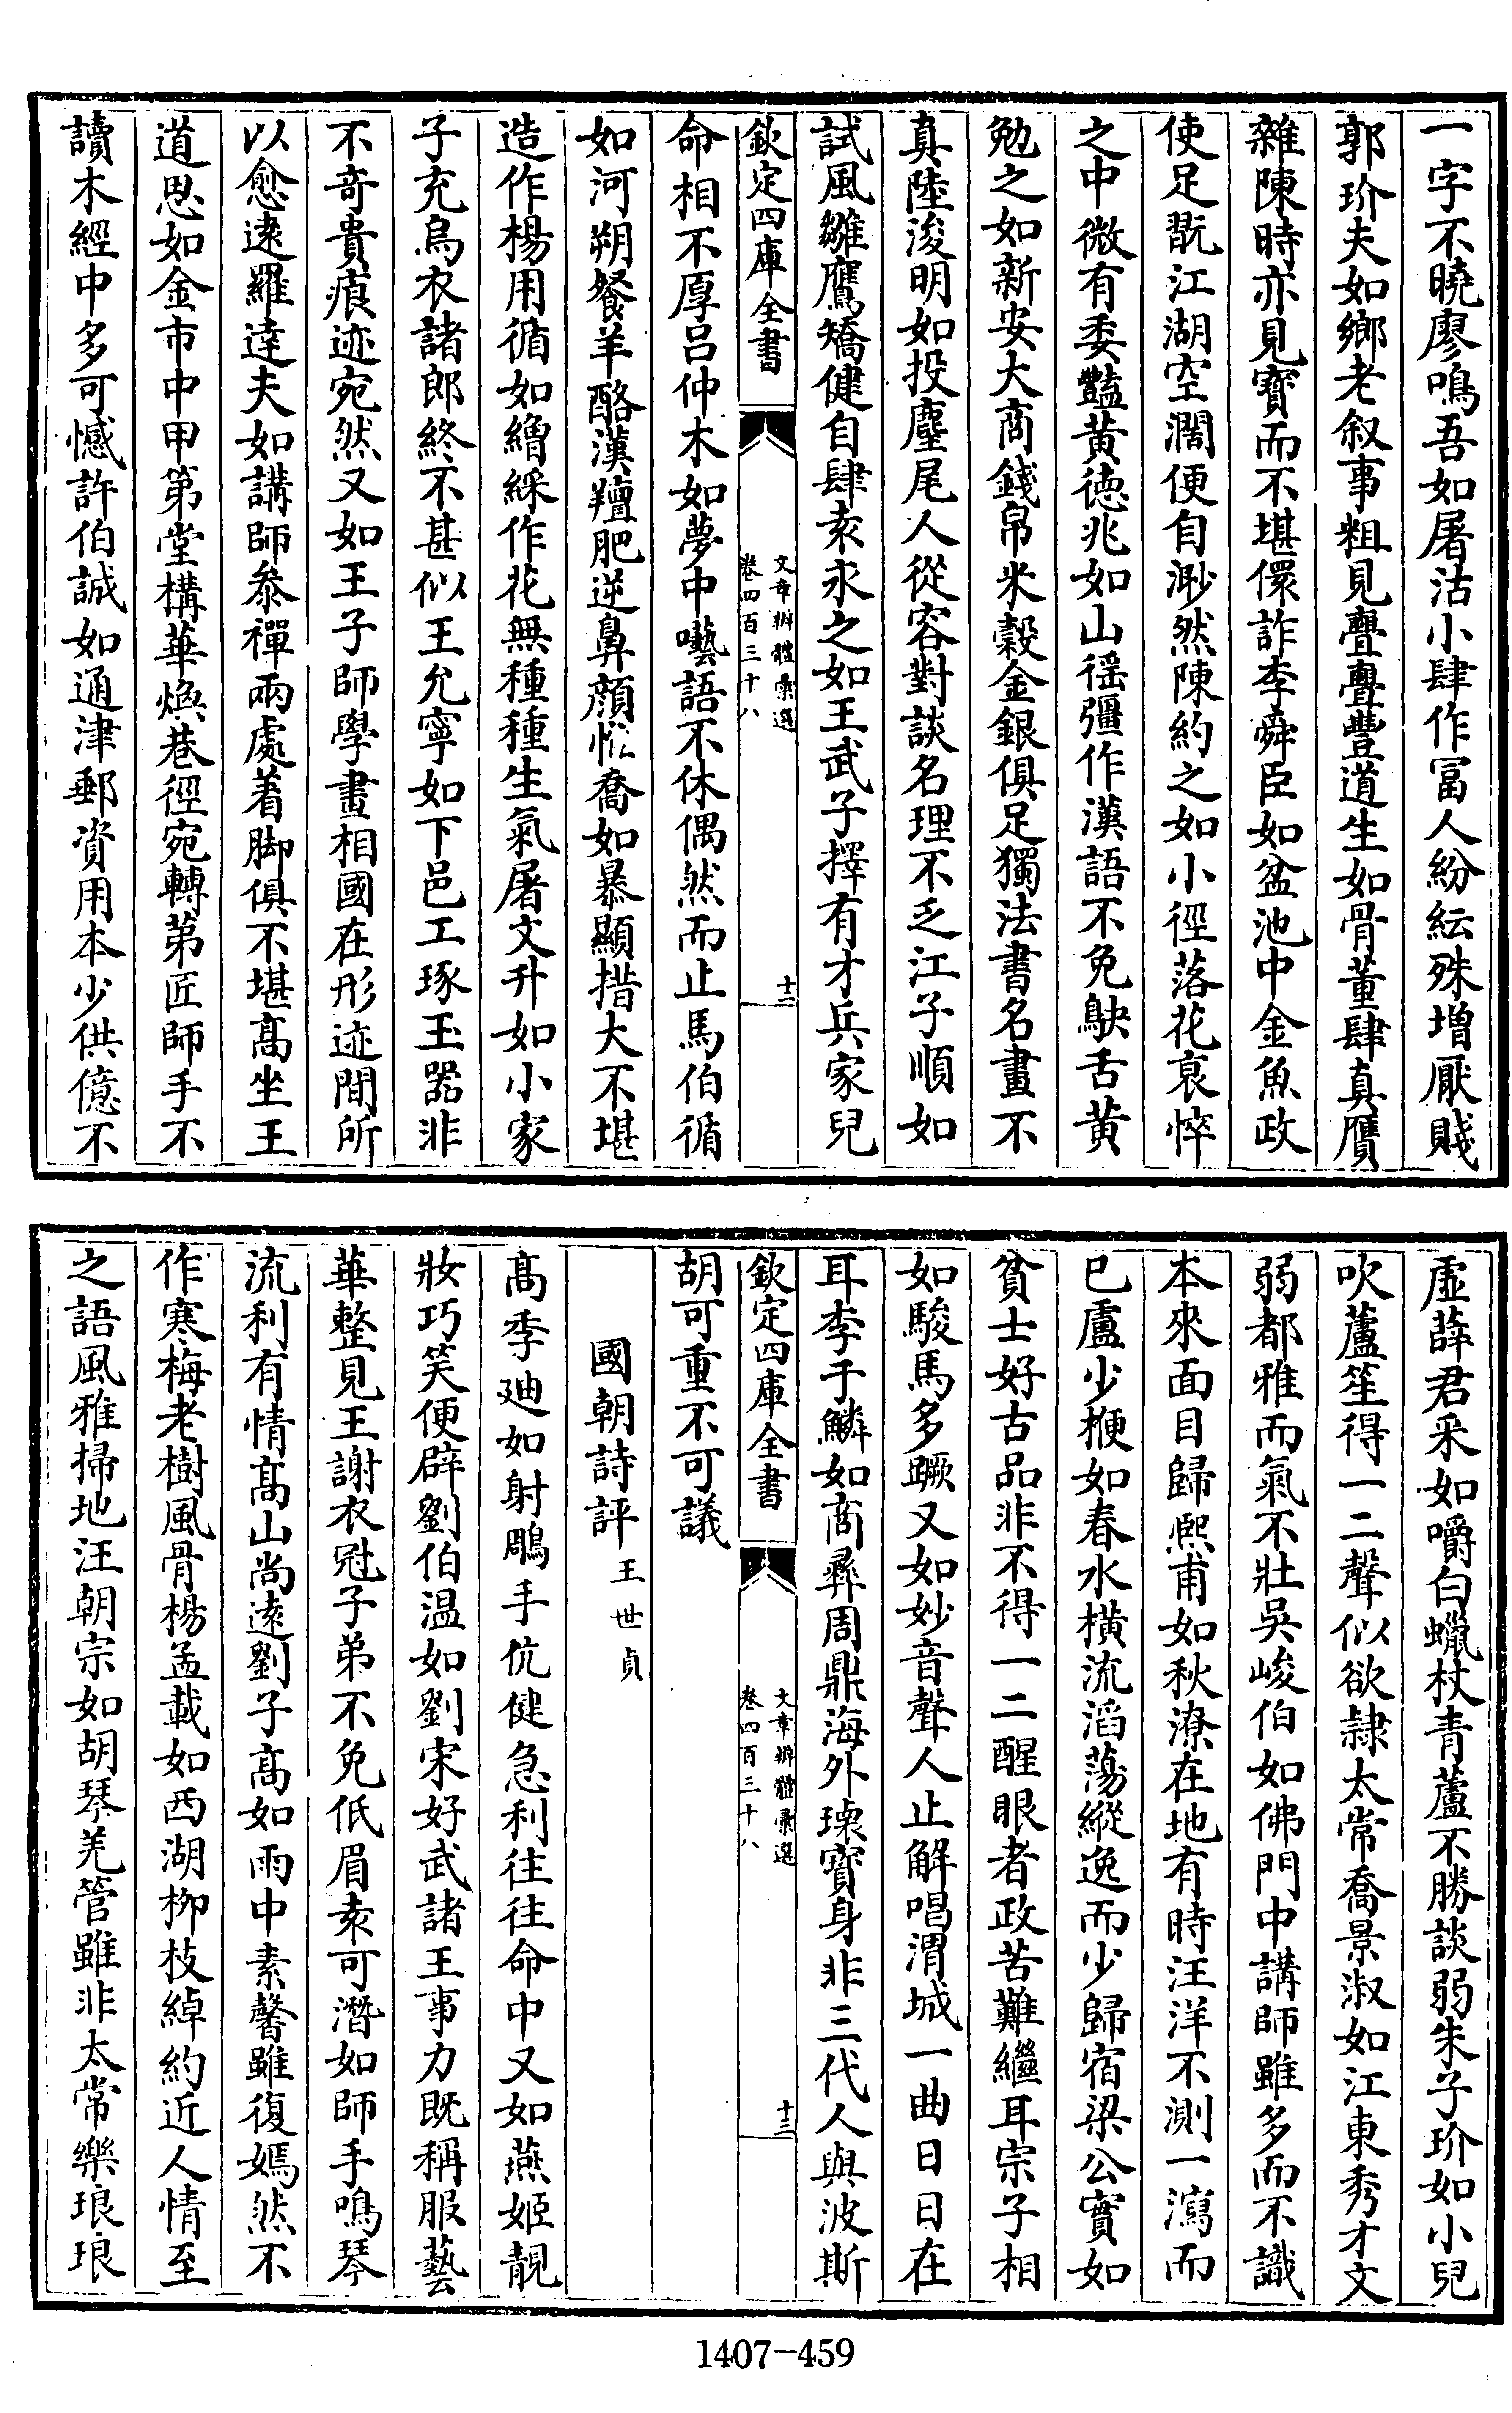 一字不曉廖鳴吾如屠沽小肆作冨人紛紜殊増厭賤
郭玠夫如鄉老叙事粗見亹亹豐道生如骨董肆真贋
雜陳時亦見寳而不堪儇詐李舜臣如盆池中金魚政
使足翫江湖空濶便自渺然陳約之如小徑落花哀悴
之中微有委豔黄徳兆如山徭彊作漢語不免鴃舌黄
勉之如新安大商錢帛米穀金銀俱足獨法書名畫不
真陸浚明如投麈尾人從容對談名理不乏江子順如
試風雛鷹矯健自肆袁永之如王武子擇有才兵家兒
欽定四庫全書
文章辨體彚選
卷四百三十八
十二
命相不厚吕仲木如夢中囈語不休偶然而止馬伯循
如河朔餐羊酪漢羶肥逆鼻顔惟喬如暴顯措大不堪
造作楊用循如繒綵作花無種種生氣屠文升如小家
子充烏衣諸郎終不甚似王允寧如下邑工琢玉器非
不竒貴痕迹宛然又如王子師學畫相國在形迹間所
以愈逺羅達夫如講師叅禪兩處着脚俱不堪髙坐王
道思如金市中甲第堂構華煥巷徑宛轉苐匠師手不
讀木經中多可憾許伯誠如通津郵資用本少供億不
虚薛君采如嚼白蠟杖青蘆不勝談弱朱子玠如小兒
吹蘆笙得一二聲似欲隸太常喬景淑如江東秀才文
弱都雅而氣不壯吳峻伯如佛門中講師雖多而不識
本來面目歸熙甫如秋潦在地有時汪洋不測一瀉而
已盧少楩如春水横流滔蕩縱逸而少歸宿梁公實如
貧士好古品非不得一二醒眼者政苦難繼耳宗子相
如駿馬多蹶又如妙音聲人止解唱渭城一曲日日在
耳李于鱗如商彛周鼎海外瓌寳身非三代人與波斯
欽定四庫全書
文章辨體彚選
卷四百三十八
十三
胡可重不可議
國朝詩評王世貞
髙季廸如射鵰手伉健急利往往命中又如燕姬靚
妝巧笑便辟劉伯温如劉宋好武諸王事力既稱服藝
華整見王謝衣冠子弟不免低眉袁可潛如師手鳴琴
流利有情髙山尚逺劉子髙如雨中素馨雖復嫣然不
作寒梅老樹風骨楊孟載如西湖栁枝綽約近人情至
之語風雅掃地汪朝宗如胡琴羌管雖非太常樂琅琅
1407-459